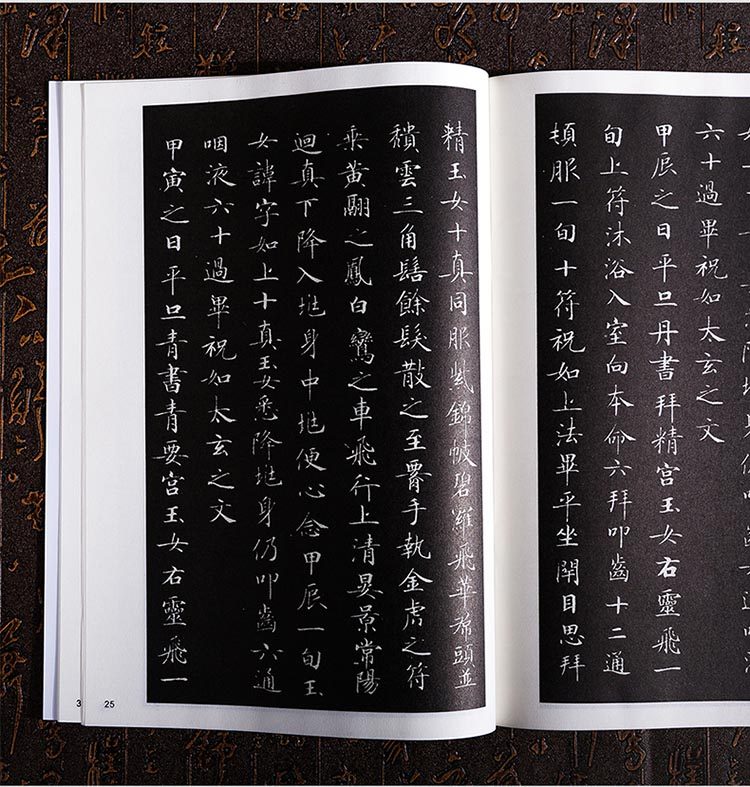 六十過畢祝如太玄之文
甲辰之日平旦丹書拜精宮玉女右靈飛一
旬上符沐浴入室向本命六拜叩齒十二通
頓服一旬十符祝如上法畢平坐閉目思拜
精玉女十真同服紫錦帔碧羅飛華帬頭並
穨雲三角髻餘髮散之至腰手執金虎之符
乘黃翮之鳳白鸞之車飛行上清晏景常陽
迴真下降入兆身中兆便心念甲辰一旬玉
女諱字如上十真玉女悉降兆身仍叩齒六通
咽液六十過畢祝如太玄之文
甲寅之日平旦青書青要宮玉女右靈飛一
3
25